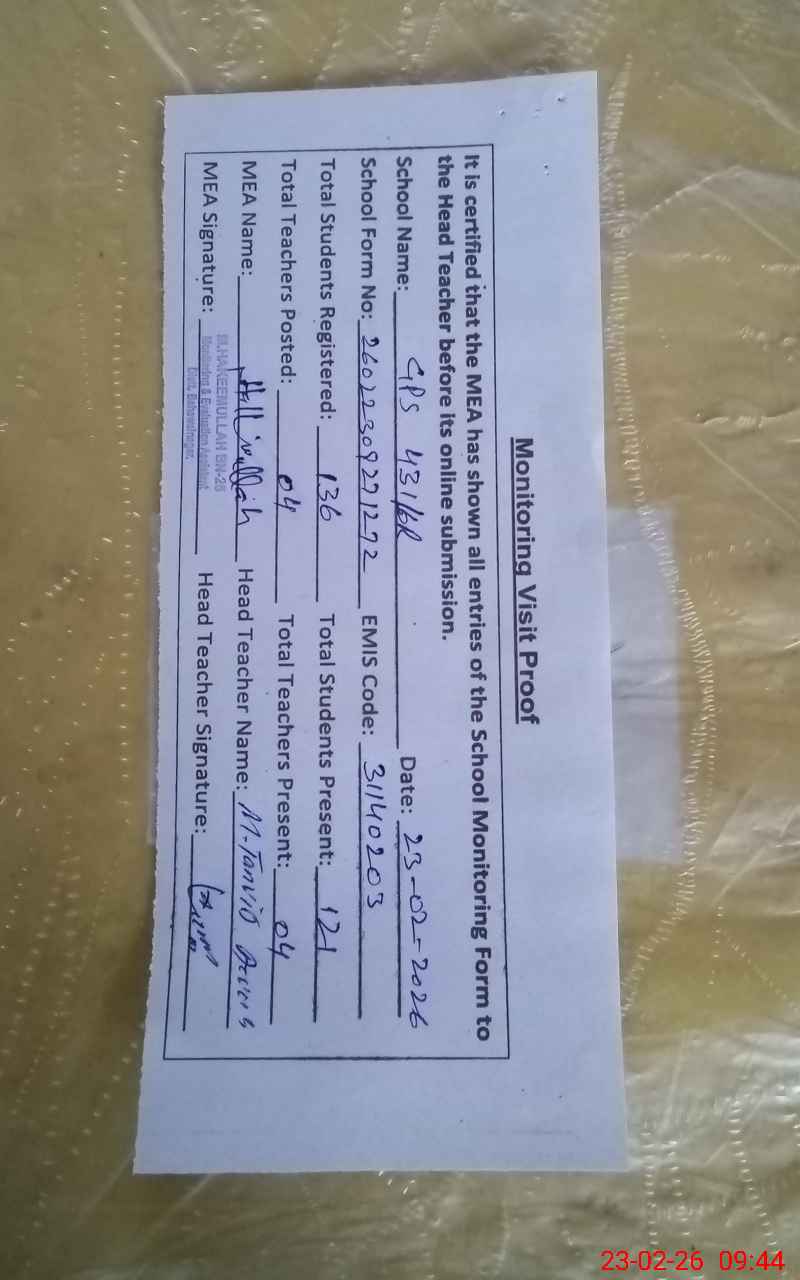 Monitoring Visit Proof
It is certified that the MEA has shown all entries of the School Monitoring Form to
the Head Teacher before its online submission.
School Name: GPS 431/6R Date: 23-02-2026
School Form No: 26022309271272 EMIS Code: 31140203
Total Students Registered: 136 Total Students Present: 121
Total Teachers Posted: 04 Total Teachers Present: 04
MEA Name: Head Teacher Name: M. Tanvir
MEA Signature: Head Teacher Signature:
HAKEEMULLAH BN-26
Monitoring & Evaluation Assistant
Distt. Bahawalnagar.
23-02-26 09:44